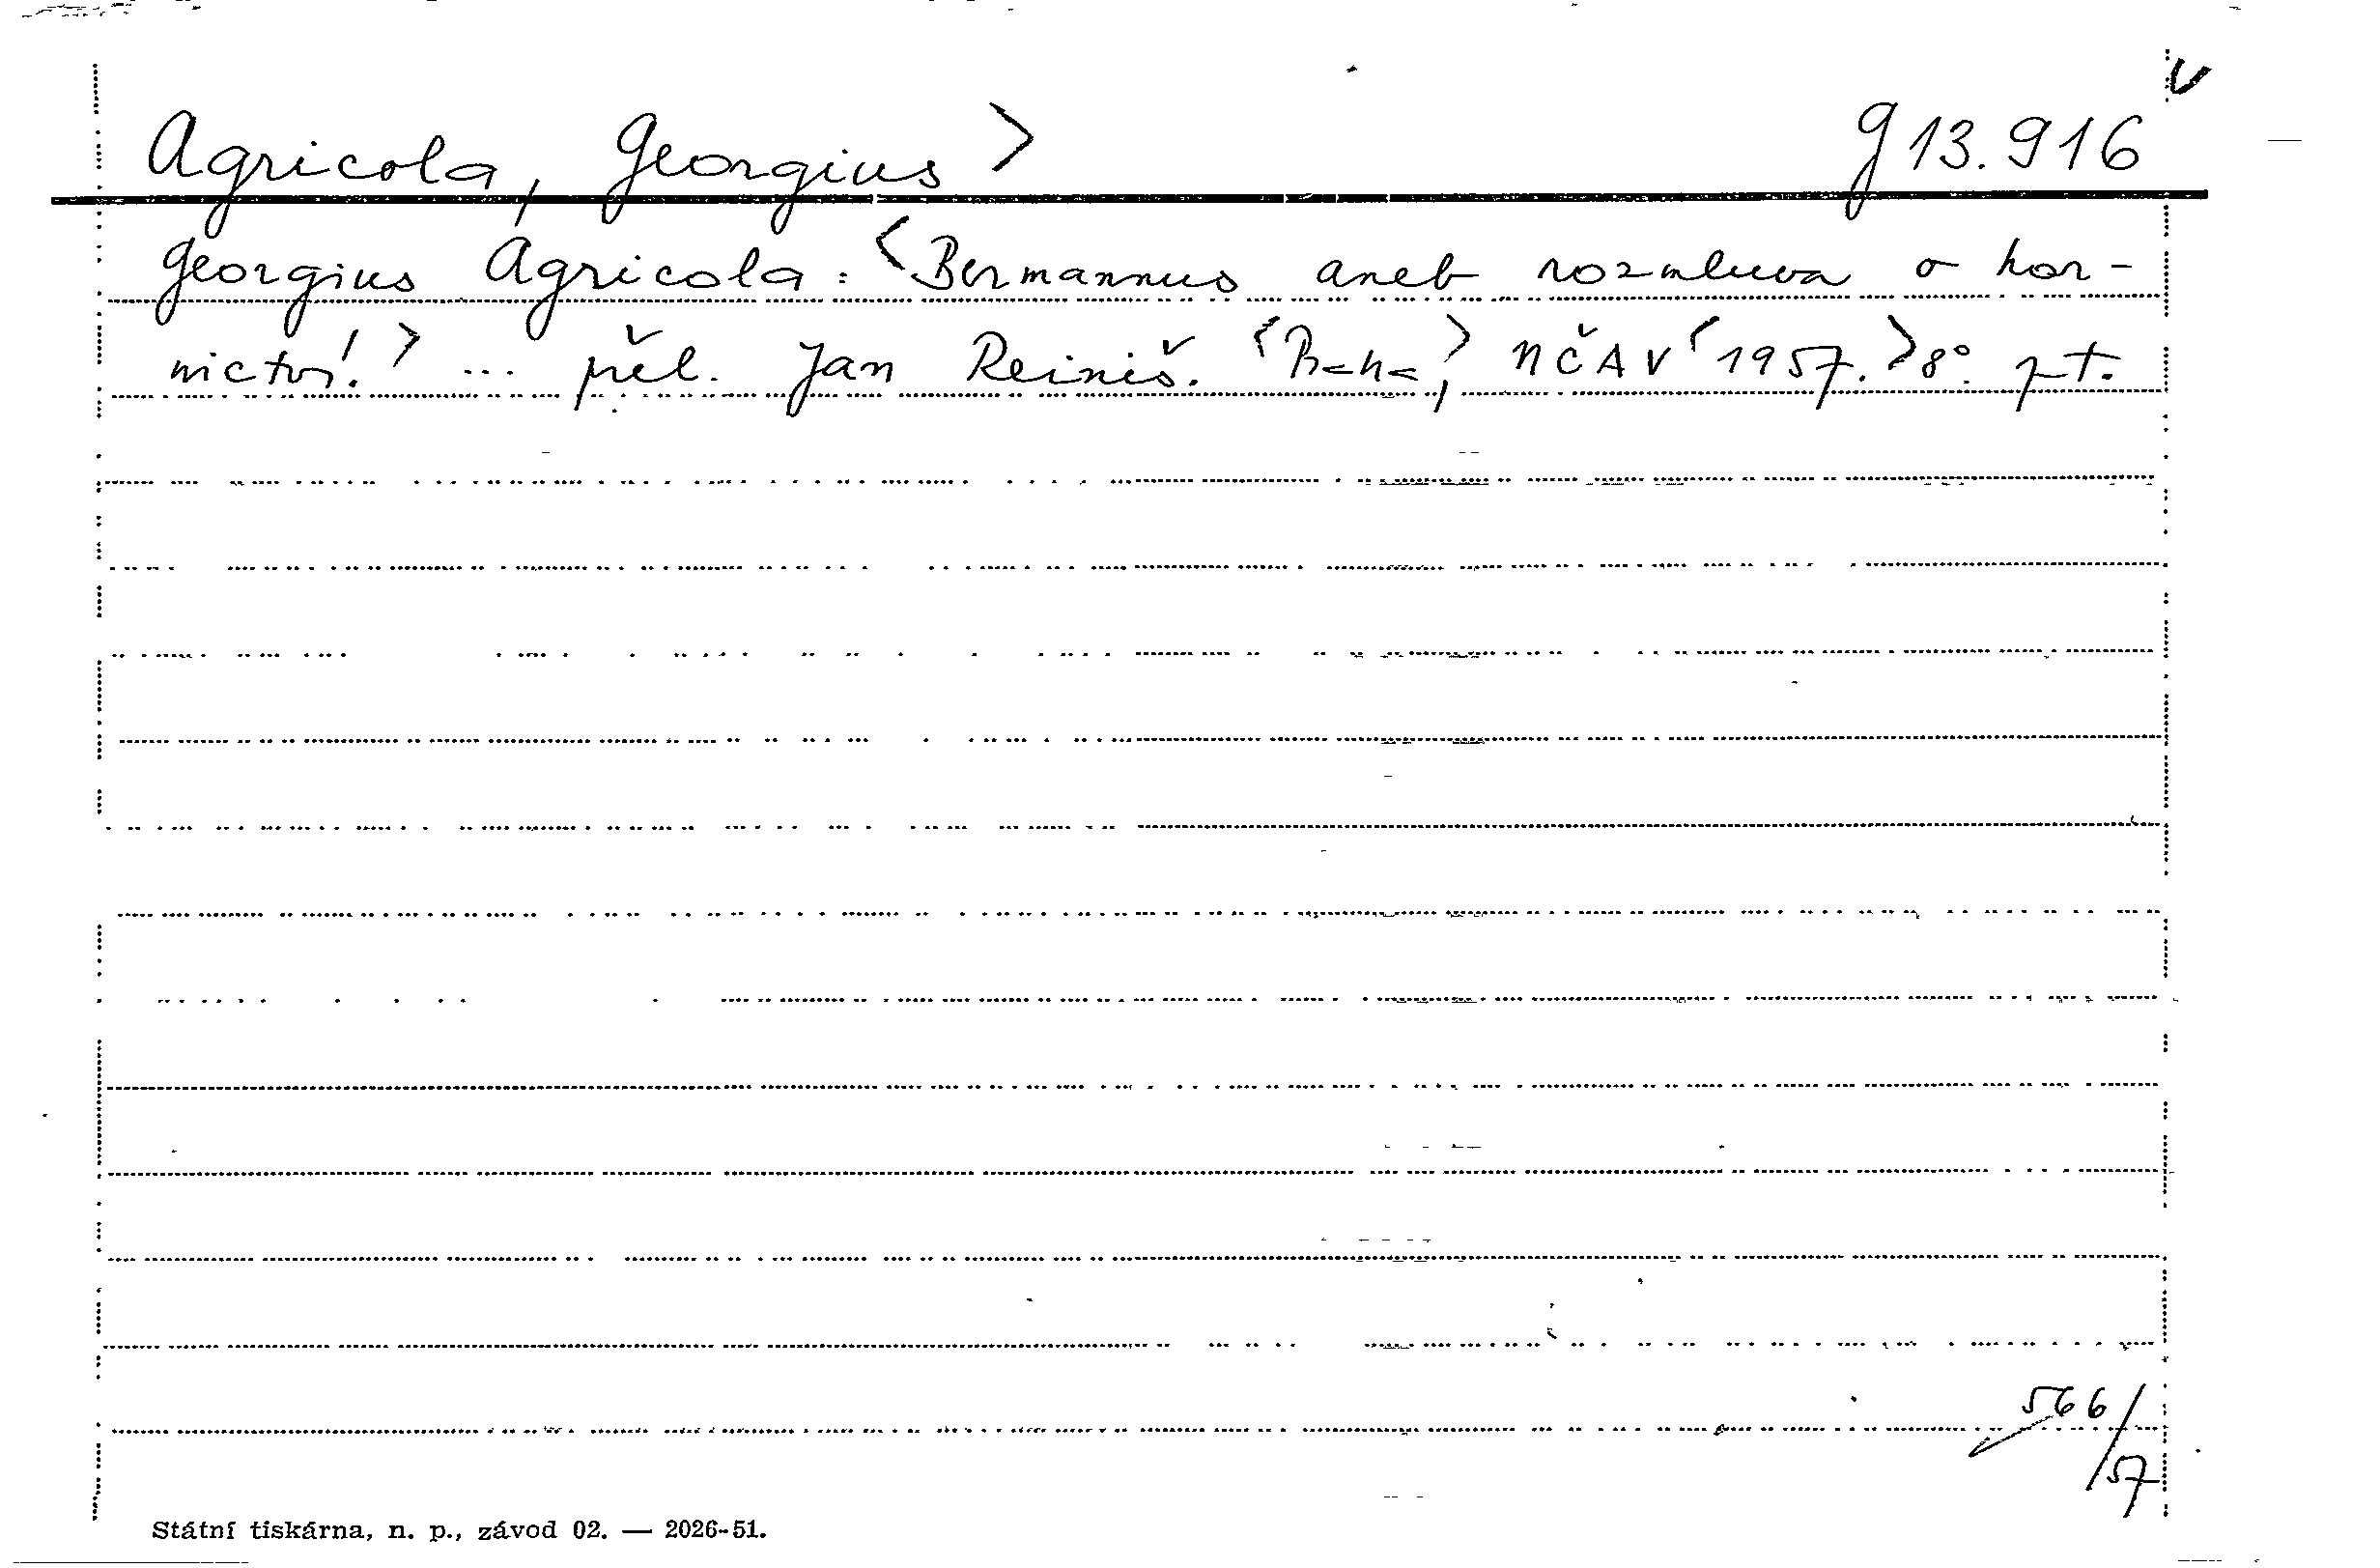 Agricola, Georgius > g 13.916
Georgius Agricola: <Bermannus aneb rozmluva o hor-
nictví.> ... přel. Jan Reiniš. <Praha,> NČAV <1957.> 8° pt.
566/57
Státní tiskárna, n. p., závod 02. — 2026-51.